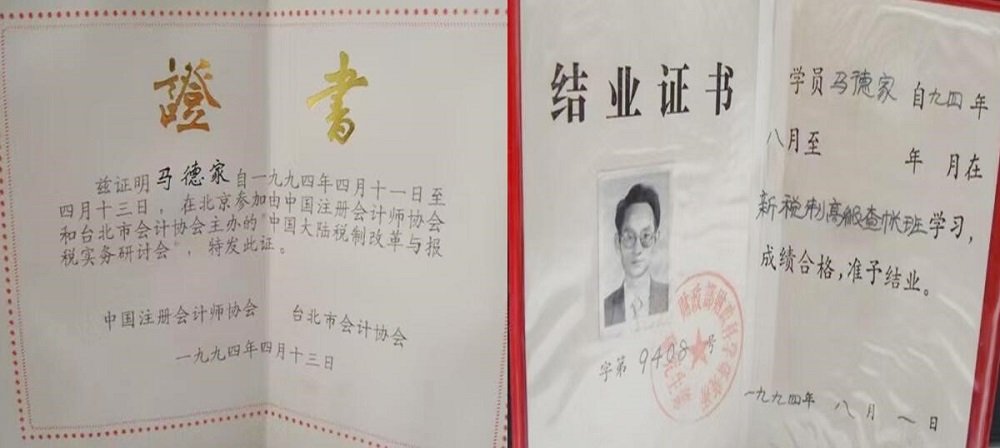 證書
兹证明马德家自一九九四年四月十一日至
四月十三日，在北京参加由中国注册会计师协会
和台北市会计协会主办的“中国大陆税制改革与报
税实务研讨会”，特发此证。
中国注册会计师协会 台北市会计协会
一九九四年四月十三日
结业证书
字第9408号
学员马德家自九四年
八月至 年 月在
新税制高级查帐班学习，
成绩合格，准予结业。
一九九四年 八月 一日